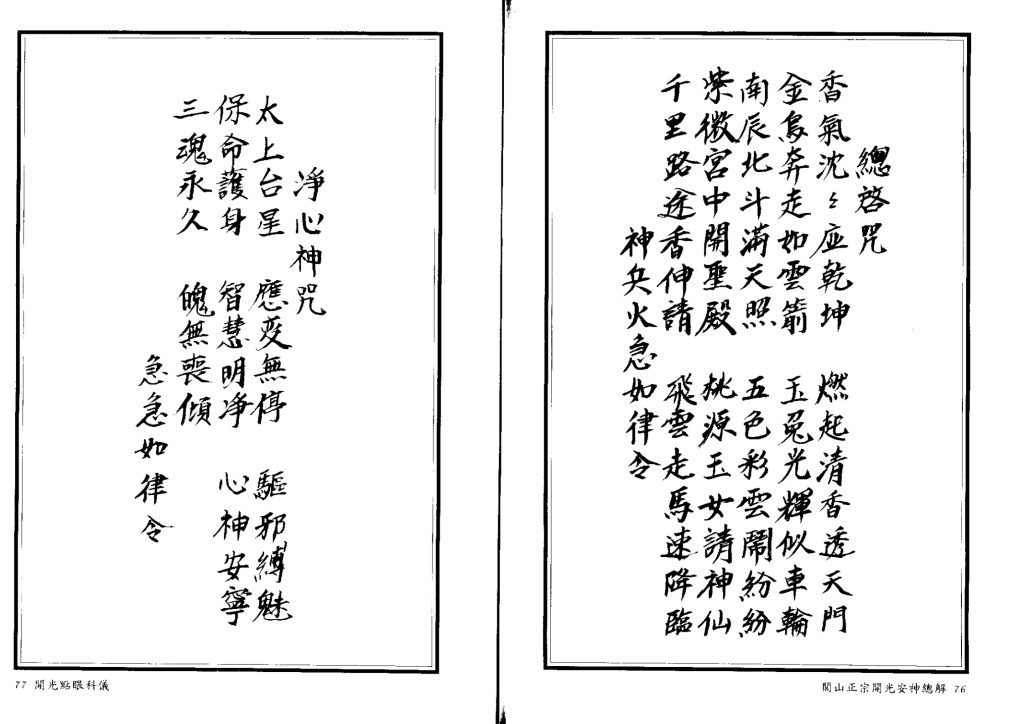 總啓咒
香氣沈〻应乾坤　燃起清香透天門
金烏奔走如雲箭　玉兔光輝似車輪
南辰北斗滿天照　五色彩雲鬧紛紛
紫微宮中開聖殿　桃源玉女請神仙
千里路途香伸請　飛雲走馬速降臨
神兵火急如律令
閭山正宗開光安神總解 76
淨心神咒
太上台星　應変無停　驅邪縛魅
保命護身　智慧明净　心神安寧
三魂永久　魄無喪傾
急急如律令
77 開光點眼科儀